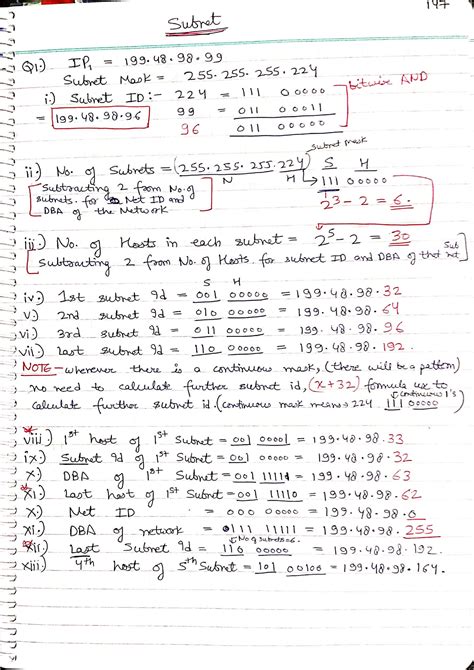 147
Subnet
Q1:) IP₁ = 199.48.98.99
Subnet Mask = 255.255.255.224
i.) Subnet ID:- 224 = 111 00000 bitwise AND
= 199.48.98.96 99 = 011 00011
96 011 00000
subnet mask
ii:) No. of Subnets = (255.255.255.224) S H
N H → 111 00000
[Subtracting 2 from No. of
subnets for Net ID and 2³-2 = 6.
DBA of the Network]
iii:) No. of Hosts in each subnet = 2⁵-2 = 30
[Subtracting 2 from No. of Hosts. for subnet ID and DBA of that Subnet]
S H
iv:) 1st subnet Id = 001 00000 = 199.48.98.32
v:) 2nd subnet Id = 010 00000 = 199.48.98.64
vi:) 3rd subnet Id = 011 00000 = 199.48.98.96
vii:) last subnet Id = 110 00000 = 199.48.98.192.
NOTE- wherever there is a continuous mask, (there will be a pattern)
no need to calculate further subnet id, (x+32) formula ux to
calculate further subnet id. (continuous mask means → 224 111 00000) (continuous 1's)
viii:) 1st host of 1st Subnet = 001 00001 = 199.48.98.33
ix:) Subnet Id of 1st Subnet = 001 00000 = 199.48.98.32
x:) DBA of 1st Subnet = 001 11111 = 199.48.98.63
xi:) Last host of 1st Subnet = 001 11110 = 199.48.98.62
x:) Net ID = 000 00000 = 199.48.98.0
xi:) DBA of network = 111 11111 = 199.48.98.255
xii:) Last Subnet Id = 110 00000 = 199.48.98.192.
xiii:) 4th host of 5th Subnet = 101 00100 = 199.48.98.164.